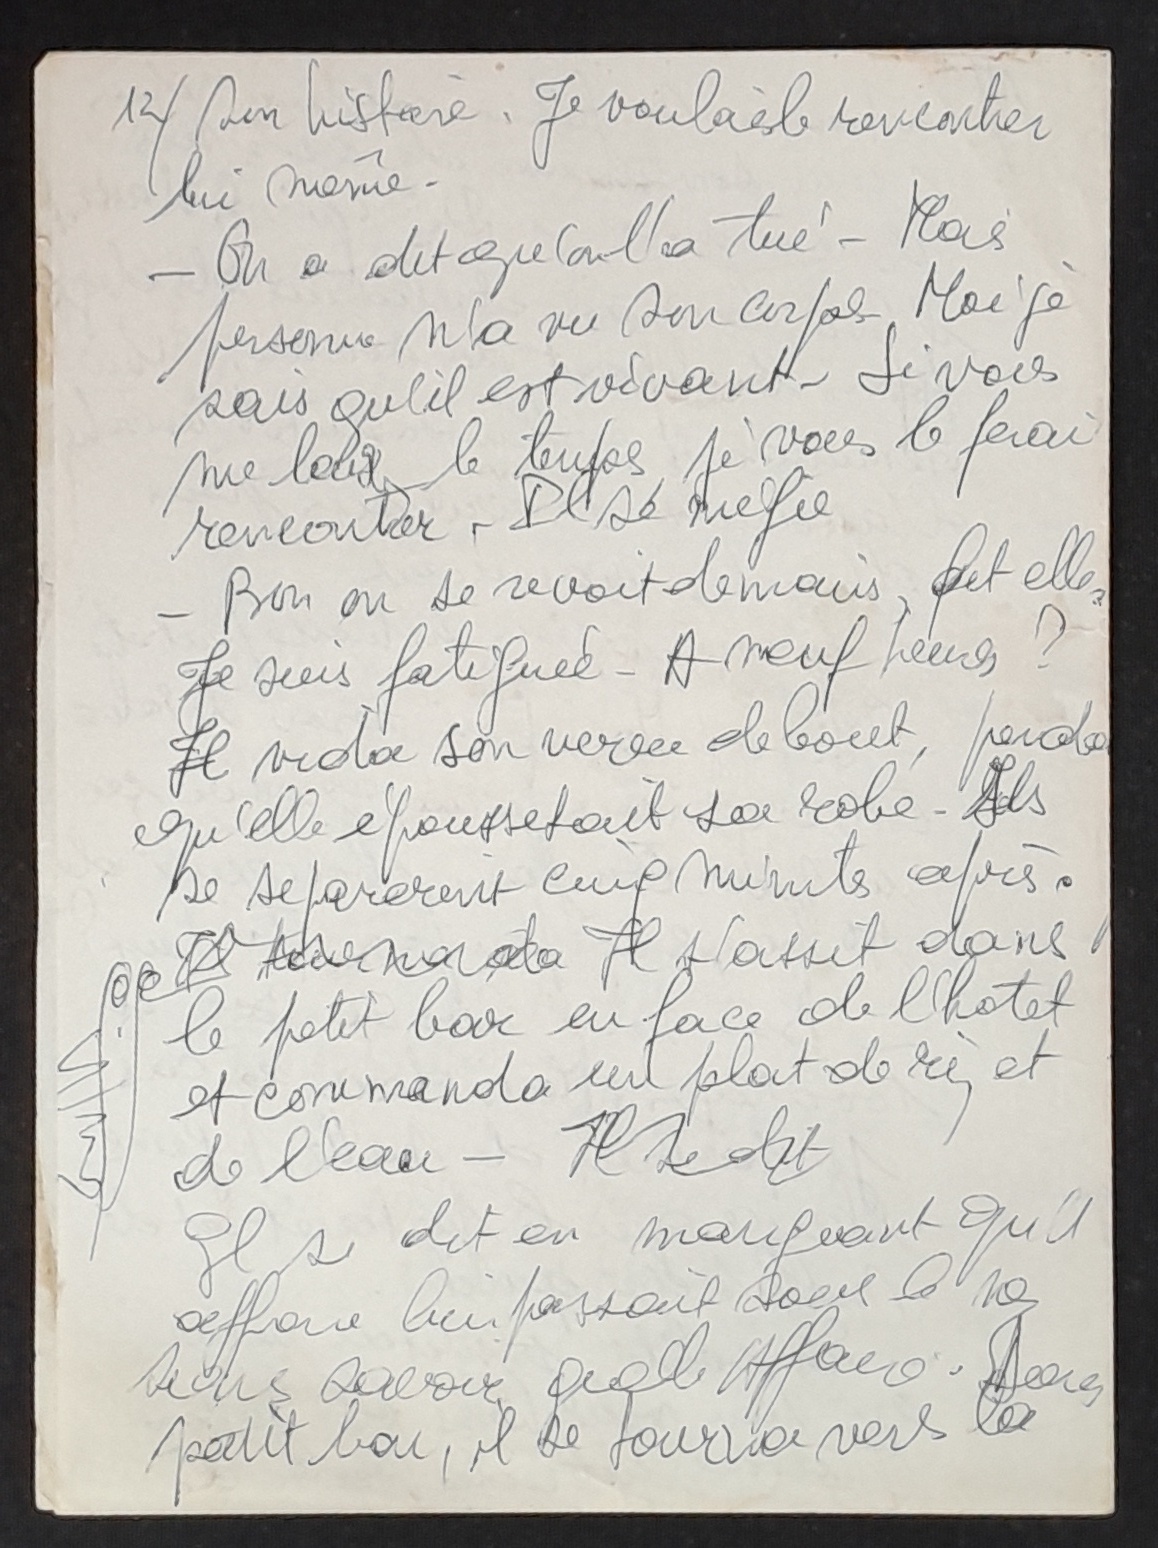 12/ son histoire. Je voulais le rencontrer
lui même -
- On a dit qu'on l'a tué - Mais
personne n'a vu son corps. Moi je
sais qu'il est vivant - Si vous
me le temps je vous le ferai
rencontrer. Il se méfie
- Bon on se revoit demain, dit elle.
Je suis fatiguée - A neuf heures ?
Il vida son verre debout, penda
qu'elle époussetait sa robe - Ils
se separerent cinq minutes après.
Il s'assit dans
le petit bar en face de l'hotel
et commanda un plat de riz et
de l'eau - Il se dit
Il se dit en mangeant qu'il
affaire lui passait sous le nez
sans savoir quelle affaire. Dans
petit bar, il se tourna vers la